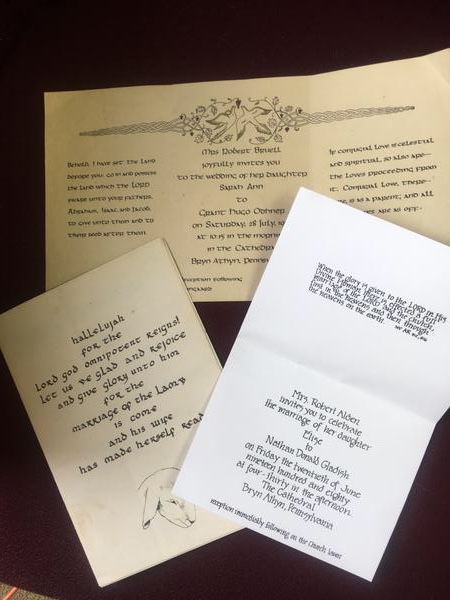 Behold, I have set the land
before you: go in and possess
the land which the LORD
sware unto your fathers,
Abraham, Isaac, and Jacob,
to give unto them and to
their seed after them
Mrs Robert Bruell
joyfully invites you
to the wedding of her daughter
Sarah Ann
to
Grant Hugo Odhner
on Saturday, 28 July,
at 10:15 in the morn
in the Cathed
Bryn Athyn, Penns
reception following
If conjugial love is celestial
and spiritual, so also are
the loves proceeding from
it. Conjugial love, there-
is as a parent; and all
are as off-
hallelujah
for the
lord god omnipotent reigns!
let us be glad and rejoice
and give glory unto him
for the
marriage of the lamb
is come
and his wife
has made herself read
When the glory is given to the LORD in His
Divine Human, there is created a full
marriage of the LORD and the church,
first in the heavens and then through
the heavens on the earth.
Mrs. Robert Alden
invites you to celebrate
the marriage of her daughter
Elise
to
Nathan Donald Gladish
on Friday the twentieth of June
nineteen hundred and eighty
at four-thirty in the afternoon.
The Cathedral
Bryn Athyn, Pennsylvania
reception immediately following on the church lawn